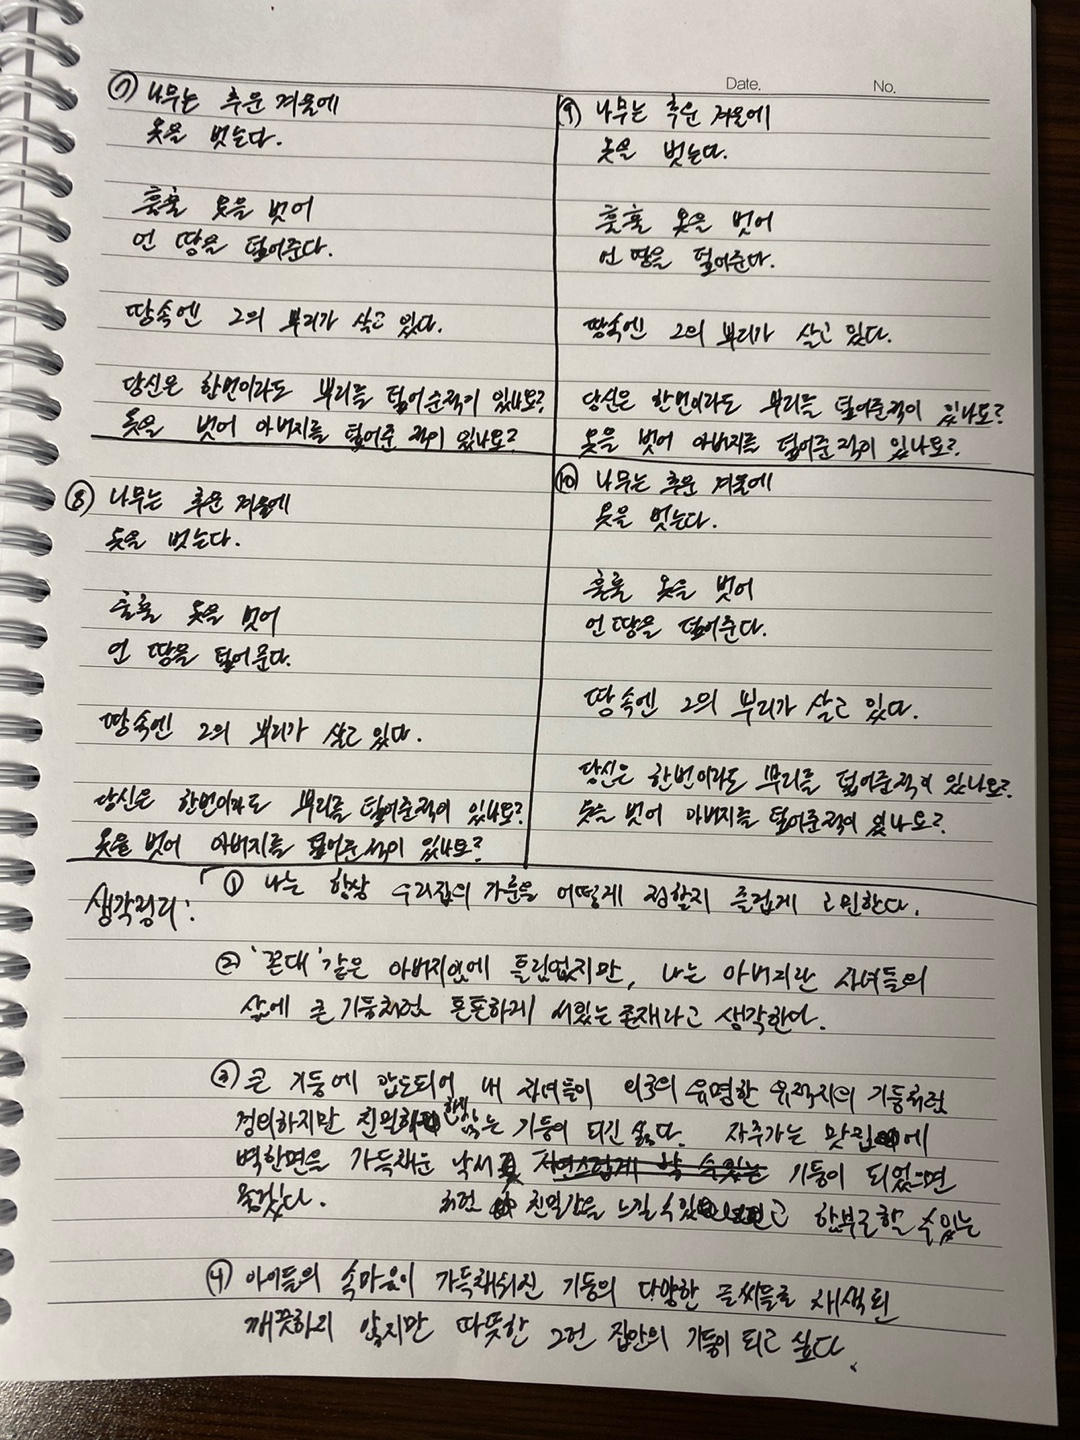 Date.
No.
⑦ 나무는 추운 겨울에
옷을 벗는다.
훌훌 옷을 벗어
언 땅을 덮어준다.
땅속엔 그의 뿌리가 살고 있다.
당신은 한번이라도 뿌리를 덮어준적이 있나요?
옷을 벗어 아버지를 덮어준 적이 있나요?
⑧ 나무는 추운 겨울에
옷을 벗는다.
훌훌 옷을 벗어
언 땅을 덮어준다.
땅속엔 그의 뿌리가 살고 있다.
당신은 한번이라도 뿌리를 덮어준적이 있나요?
옷을 벗어 아버지를 덮어준적이 있나요?
⑨ 나무는 추운 겨울에
옷을 벗는다.
훌훌 옷을 벗어
언 땅을 덮어준다.
땅속엔 그의 뿌리가 살고 있다.
당신은 한번이라도 뿌리를 덮어준적이 있나요?
옷을 벗어 아버지를 덮어준적이 있나요?
⑩ 나무는 추운 겨울에
옷을 벗는다.
훌훌 옷을 벗어
언 땅을 덮어준다.
땅속엔 그의 뿌리가 살고 있다.
당신은 한번이라도 뿌리를 덮어준적이 있나요?
옷을 벗어 아버지를 덮어준적이 있나요?
생각정리: ① 나는 항상 우리집의 가훈을 어떻게 정할지 즐겁게 고민한다.
② '꼰대' 같은 아버지임에 틀림없지만, 나는 아버지란 자녀들의
삶에 큰 기둥처럼 튼튼하게 서있는 존재라고 생각한다.
③ 큰 기둥에 압도되어 내 자녀들이 외국의 유명한 유적지의 기둥처럼
경의하지만 친밀하지 않는 기둥이 되긴 싫다. 자주가는 맛집에
벽한면을 가득채운 낙서 기둥이 되었으면
좋겠다. 처럼 친밀감을 느낄 수 있고 한부로할 수있는
④ 아이들의 속마음이 가득채워진 기둥의 다양한 글씨들로 채색된
깨끗하리 않지만 따뜻한 그런 집안의 기둥이 되고 싶다.